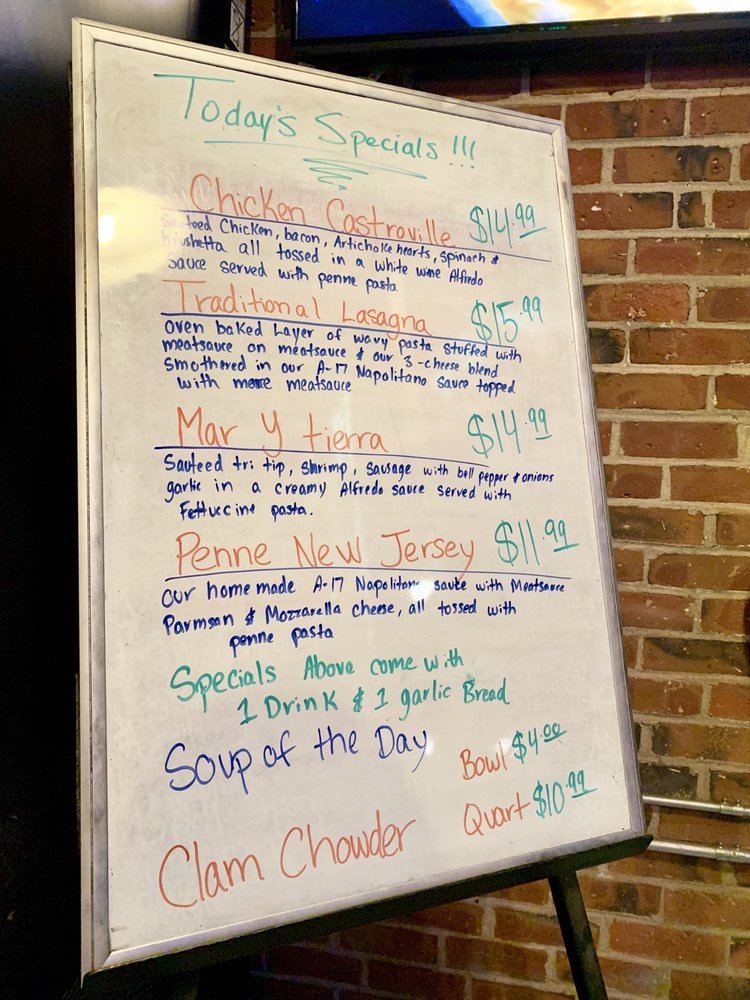 Today's Specials !!!
Chicken Castroville $14.99
Sauteed Chicken, bacon, Artichoke hearts, spinach &
brushetta all tossed in a white wine Alfredo
sauce served with penne pasta
Traditional Lasagna $15.99
oven baked Layer of wavy pasta stuffed with
meatsauce on meatsauce & our 3-cheese blend
Smothered in our A-17 Napolitano sauce topped
with more meatsauce
Mar y tierra $14.99
Sauteed tri tip, shrimp, sausage with bell pepper & onions
garlic in a creamy Alfredo sauce served with
Fettuccine pasta.
Penne New Jersey $11.99
our homemade A-17 Napolitano sauce with Meatsauce
Parmsan & Mozzarella cheese, all tossed with
penne pasta
Specials Above come with
1 Drink & 1 garlic Bread
Soup of the Day
Bowl $4.00
Quart $10.99
Clam Chowder